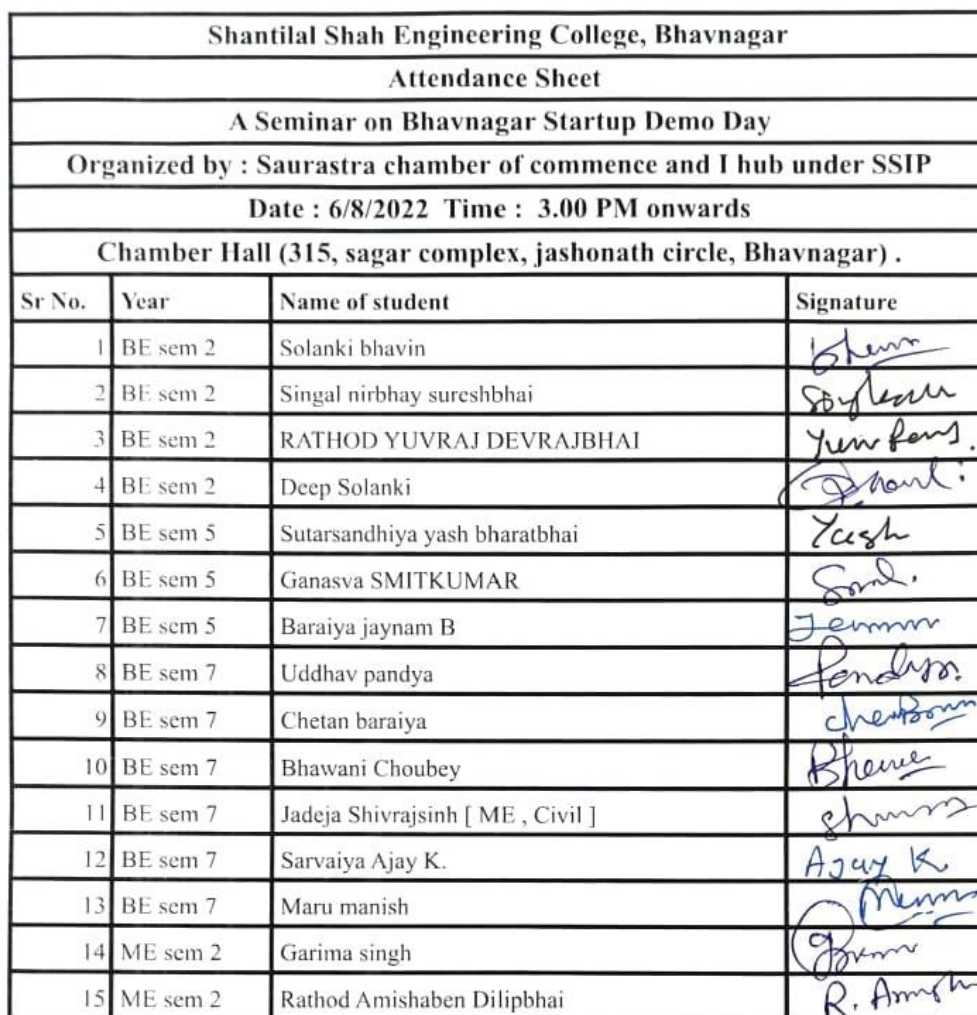 Shantilal Shah Engineering College, Bhavnagar
Attendance Sheet
A Seminar on Bhavnagar Startup Demo Day
Organized by : Saurastra chamber of commence and I hub under SSIP
Date : 6/8/2022 Time : 3.00 PM onwards
Chamber Hall (315, sagar complex, jashonath circle, Bhavnagar) .
Sr No. Year Name of student Signature
1 BE sem 2 Solanki bhavin
2 BE sem 2 Singal nirbhay sureshbhai
3 BE sem 2 RATHOD YUVRAJ DEVRAJBHAI
4 BE sem 2 Deep Solanki
5 BE sem 5 Sutarsandhiya yash bharatbhai Yash
6 BE sem 5 Ganasva SMITKUMAR
7 BE sem 5 Baraiya jaynam B
8 BE sem 7 Uddhav pandya Pandya.
9 BE sem 7 Chetan baraiya
10 BE sem 7 Bhawani Choubey
11 BE sem 7 Jadeja Shivrajsinh [ ME , Civil ]
12 BE sem 7 Sarvaiya Ajay K. Ajay K
13 BE sem 7 Maru manish
14 ME sem 2 Garima singh
15 ME sem 2 Rathod Amishaben Dilipbhai R.